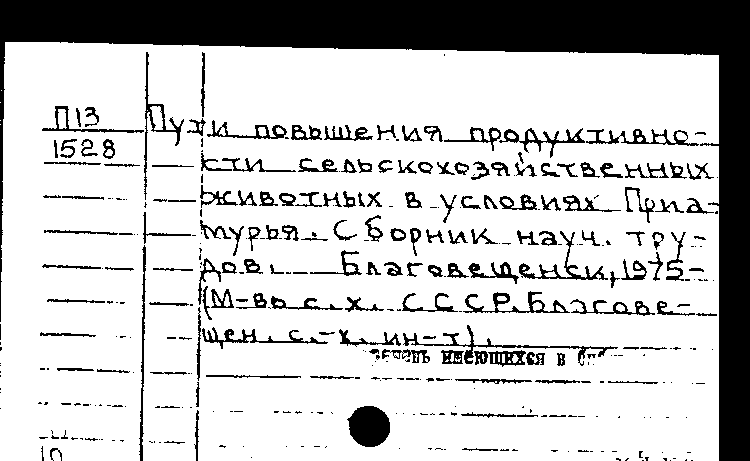 П13 Пути повышения продуктивно-
1528 сти сельскохозяйственных
животных в условиях Приа-
мурья. Сборник науч. тру-
дов. Благовещенск, 1975-
(М-во с.х. СССР. Благове-
щен. с.-х. ин-т).
имеющихся в